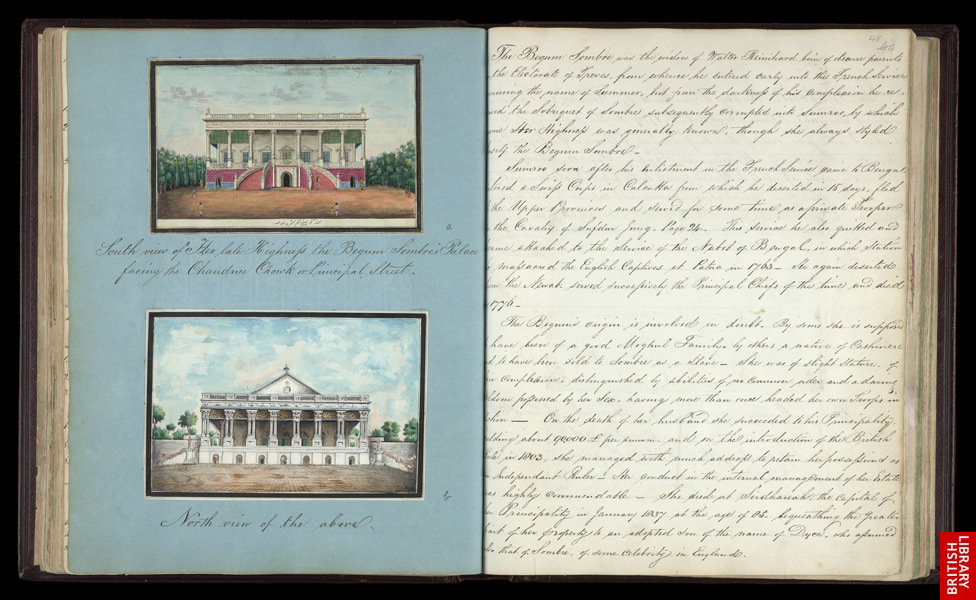 a.
South view of Her late Highness the Begum Sombre's Palace
facing the Chandnee Chowk or Principal Street.
b
North view of the above.
48
The Begum Sombre was the widow of Walter Reinhard born of obscure parents
the Electorate of Treves, from whence he entered early into the French Service
the name of Summer, but from the darkness of his complexion he re-
the Sobriquet of Sombre subsequently corrupted into Sumroo, by which
Her Highness was generally known, though she always styled
self the Begum Sombre.
Sumroo soon after his enlistment in the French Service came to Bengal
a Swiss Corps in Calcutta from which he deserted in 15 days, fled
the Upper Provinces and served for some time as a private Trooper
the Cavalry of Sufdur Jung. Page 24. This service he also quitted and
attached to the service of the Nabob of Bengal, in which station
massacred the English Captives at Patna in 1763 - He again deserted
the Nawab, served successively the Principal Chiefs of the time and died
1776 -
The Begum's origin is involved in doubt. By some she is supposed
have been of a good Moghul Family, by others a native of Cashmere
to have been sold to Sombre as a Slave - She was of slight stature, of
complexion, distinguished by abilities of no common order and a daring
possessed by her Sex - having more than once headed her own Troops in
- On the death of her husband she succeeded to his Principality
about 90000 £ per annum, and on the introduction of the British
in 1803, she managed with much address to retain her possessions as
Independent Ruler - Her conduct in the internal management of her Estate
as highly commendable - She died at Sirdhanah, the capital of
Principality in January 1837 at the age of 85. bequeathing the Greater
part of her property to an adopted Son of the name of Dyce, who assumed
that of Sombre, of some celebrity in England.
BRITISH
LIBRARY